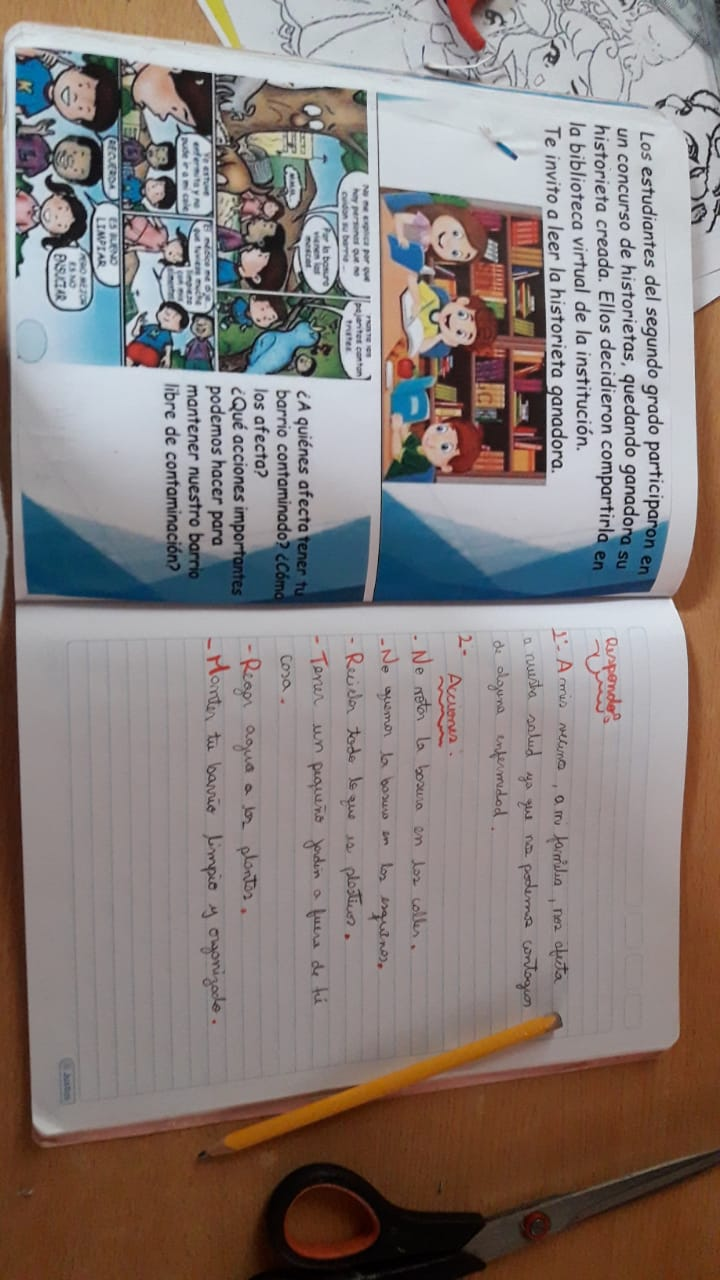 Los estudiantes del segundo grado participaron en
un concurso de historietas, quedando ganadora su
historieta creada. Ellos decidieron compartirla en
la biblioteca virtual de la institución.
Te invito a leer la historieta ganadora.
No me explico por qué
hay personas que no
cuidan su barrio...
Por la basura
vienen las
moscas
pajaritos cantan
tristes
Yo estuve
enfermita y no
pude ir a mi cole
El médico me dijo
que tuviese mucha
limpieza
con mis
RECUERDA
ES BUENO
LIMPIAR
PERO MEJOR
ES NO
ENSUCIAR
¿A quiénes afecta tener tu
barrio contaminado? ¿Cómo
los afecta?
¿Qué acciones importantes
podemos hacer para
mantener nuestro barrio
libre de contaminación?
Respondo:
1.- A mis vecinos, a mi familia, nos afecta
a nuestra salud ya que nos podemos contagiar
de alguna enfermedad.
2.- Acciones:
- No botar la basura en las calles.
- No quemar la basura en las esquinas.
- Reciclar todo lo que es plastico.
- Tener un pequeño jardin a fuera de tú
casa.
- Regar agua a las plantas.
- Manter tu barrio limpio y organizado.
Justus